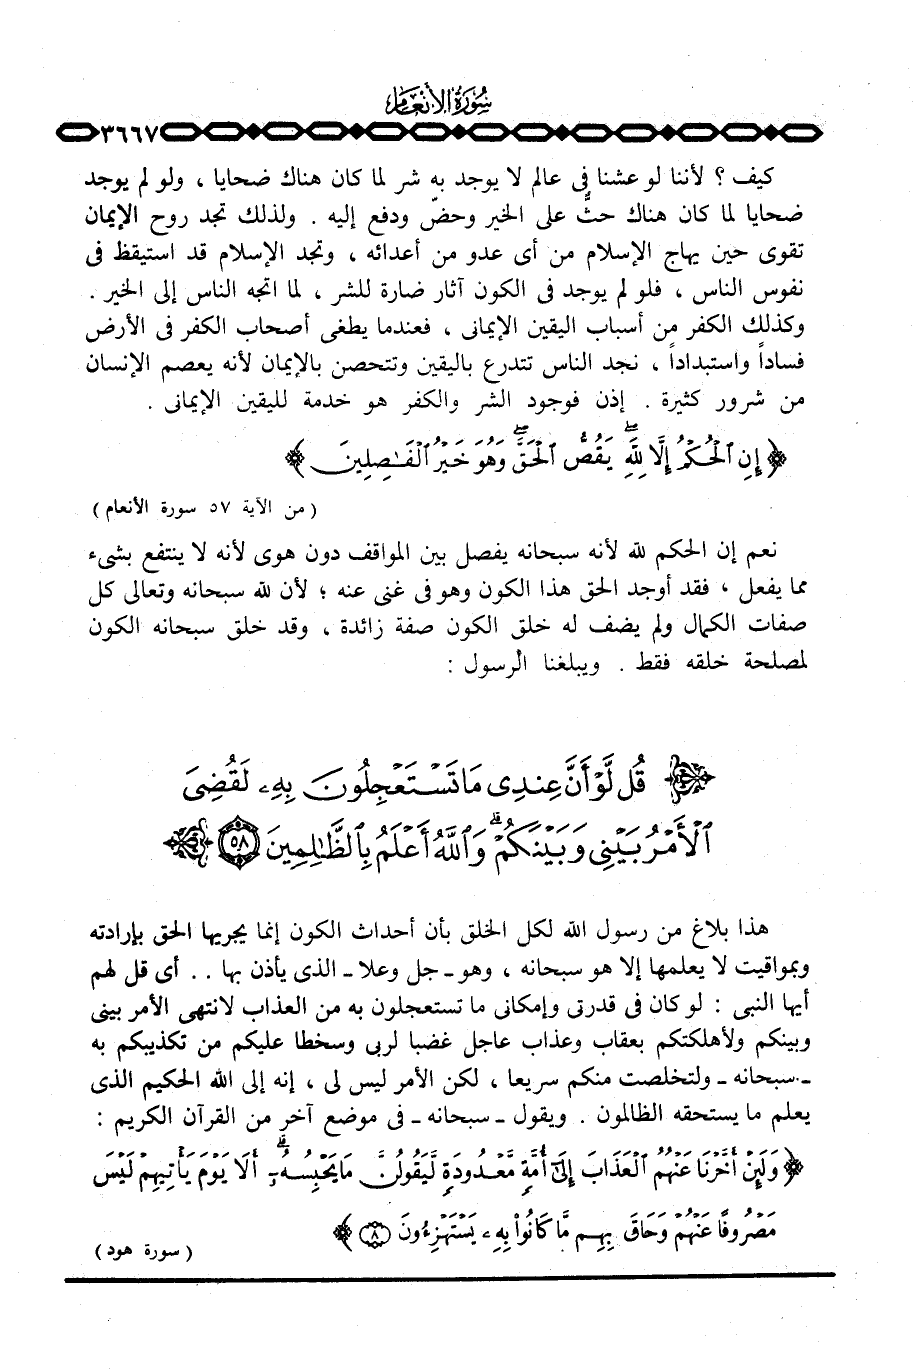 سُورَةُ الأَنْعَام
٣٦٦٧
كيف ؟ لأننا لو عشنا فى عالم لا يوجد به شر لما كان هناك ضحايا ، ولو لم يوجد
ضحايا لما كان هناك حثٌّ على الخير وحضّ ودفع إليه . ولذلك تجد روح الإيمان
تقوى حين يهاج الإسلام من أى عدو من أعدائه ، وتجد الإسلام قد استيقظ فى
نفوس الناس ، فلو لم يوجد فى الكون آثار ضارة للشر ، لما اتجه الناس إلى الخير .
وكذلك الكفر من أسباب اليقين الإيمانى ، فعندما يطغى أصحاب الكفر فى الأرض
فساداً واستبداداً ، نجد الناس تتدرع باليقين وتتحصن بالإيمان لأنه يعصم الإنسان
من شرور كثيرة . إذن فوجود الشر والكفر هو خدمة لليقين الإيمانى .
﴿ إِنِ ٱلْحُكْمُ إِلَّا لِلَّهِ ۖ يَقُصُّ ٱلْحَقَّ ۖ وَهُوَ خَيْرُ ٱلْفَٰصِلِينَ ﴾
( من الآية ٥٧ سورة الأنعام )
نعم إن الحكم لله لأنه سبحانه يفصل بين المواقف دون هوى لأنه لا ينتفع بشىء
مما يفعل ، فقد أوجد الحق هذا الكون وهو فى غنى عنه ؛ لأن لله سبحانه وتعالى كل
صفات الكمال ولم يضف له خلق الكون صفة زائدة ، وقد خلق سبحانه الكون
لمصلحة خلقه فقط . ويبلغنا الرسول :
﴿ قُل لَّوْ أَنَّ عِندِى مَا تَسْتَعْجِلُونَ بِهِۦ لَقُضِىَ
ٱلْأَمْرُ بَيْنِى وَبَيْنَكُمْ ۗ وَٱللَّهُ أَعْلَمُ بِٱلظَّٰلِمِينَ ٥٨ ﴾
هذا بلاغ من رسول الله لكل الخلق بأن أحداث الكون إنما يجريها الحق بإرادته
وبمواقيت لا يعلمها إلا هو سبحانه ، وهو ـ جل وعلا ـ الذى يأذن بها . . أى قل لهم
أيها النبى : لو كان فى قدرتى وإمكانى ما تستعجلون به من العذاب لانتهى الأمر بينى
وبينكم ولأهلكتكم بعقاب وعذاب عاجل غضبا لربى وسخطا عليكم من تكذيبكم به
ـ سبحانه ـ ولتخلصت منكم سريعا ، لكن الأمر ليس لى ، إنه إلى الله الحكيم الذى
يعلم ما يستحقه الظالمون . ويقول ـ سبحانه ـ فى موضع آخر من القرآن الكريم :
﴿ وَلَئِنْ أَخَّرْنَا عَنْهُمُ ٱلْعَذَابَ إِلَىٰٓ أُمَّةٍ مَّعْدُودَةٍ لَّيَقُولُنَّ مَا يَحْبِسُهُۥٓ ۗ أَلَا يَوْمَ يَأْتِيهِمْ لَيْسَ
مَصْرُوفًا عَنْهُمْ وَحَاقَ بِهِم مَّا كَانُوا۟ بِهِۦ يَسْتَهْزِءُونَ ٨ ﴾
( سورة هود )